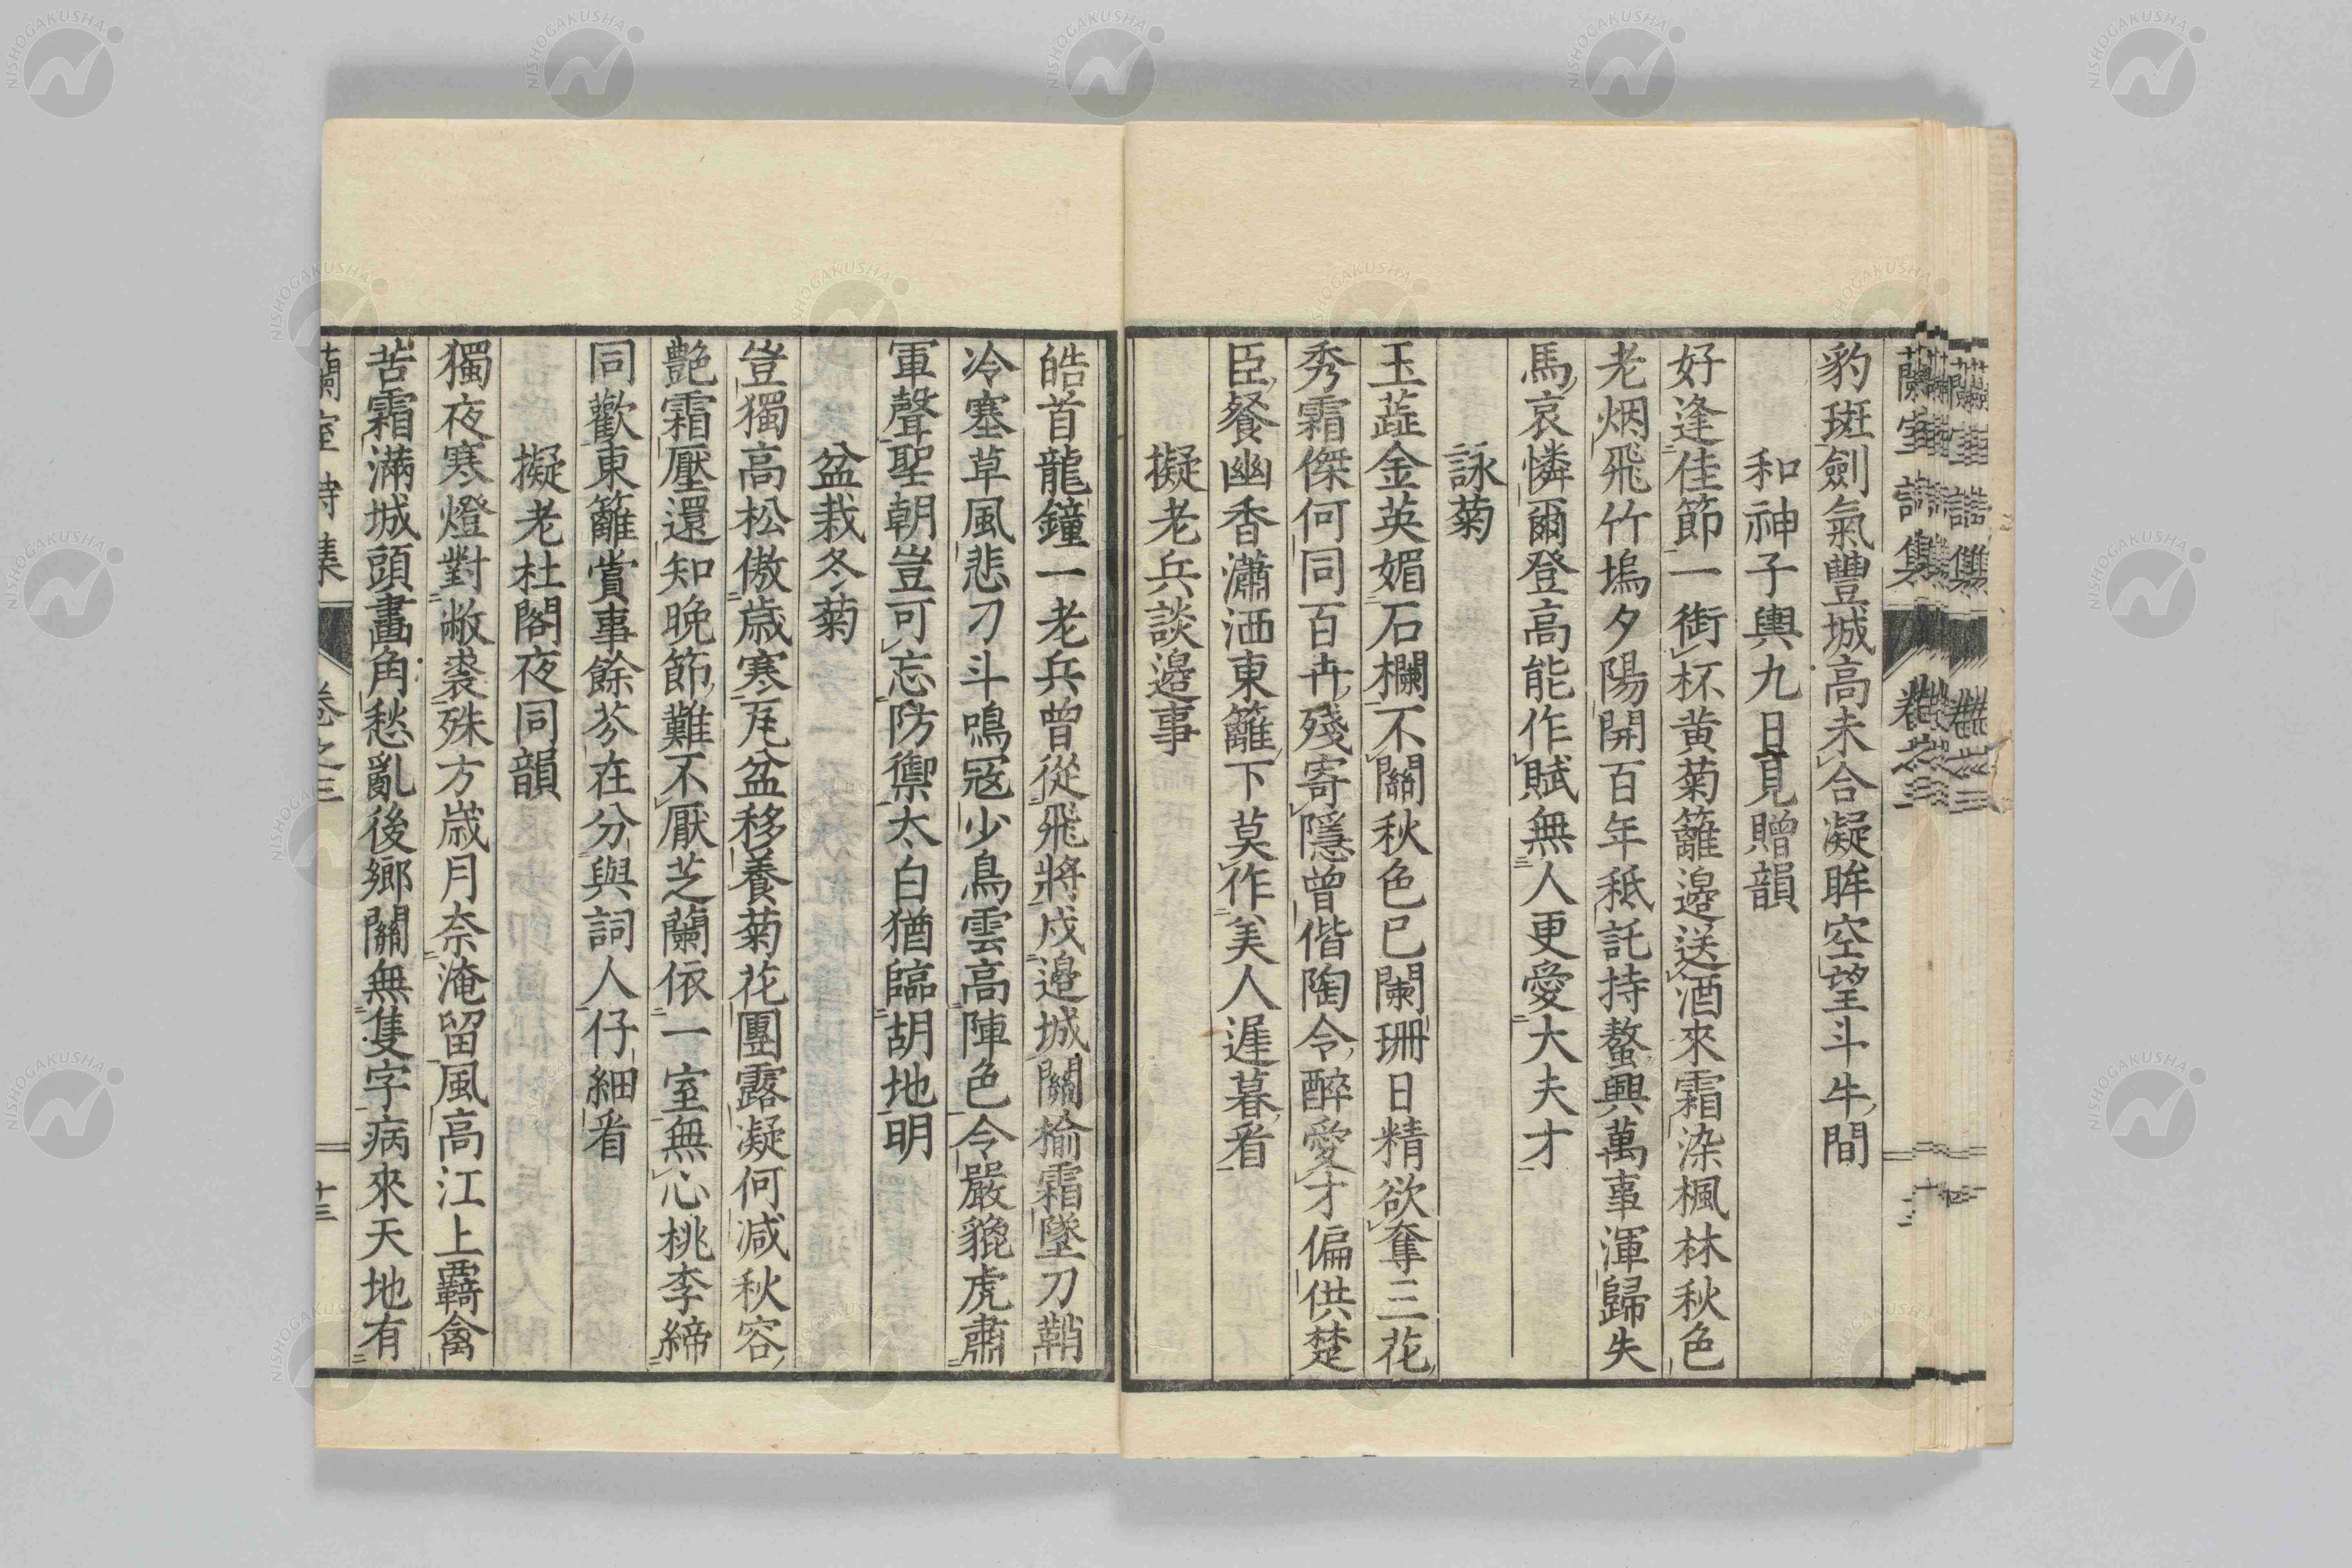 豹斑劍氣豐城高未合凝眸空望斗牛間
和神子輿九日見贈韻
好逢佳節一銜杯黄菊籬邊送酒來霜染楓林秋色
老烟飛竹塢夕陽開百年秪託持螯興萬事渾歸失
馬哀憐爾登高能作賦無人更愛大夫才
詠菊
玉蕋金英媚石欄不關秋色已闌珊日精欲奪三花
秀霜傑何同百卉殘寄隱曾偕陶令醉愛才偏供楚
臣餐幽香瀟洒東籬下莫作美人遲暮看
擬老兵談邊事
皓首龍鐘一老兵曾從飛將戍邊城關榆霜墜刀鞘
冷塞草風悲刁斗鳴冦少鳥雲高陣色令嚴貔虎肅
軍聲聖朝豈可忘防禦太白猶臨胡地明
盆栽冬菊
豈獨高松傲歳寒瓦盆移養菊花團露凝何減秋容
艶霜壓還知晩節難不厭芝蘭依一室無心桃李締
同歡東籬賞事餘芬在分與詞人仔細看
擬老杜閣夜同韻
獨夜寒燈對敝裘殊方歳月奈淹留風高江上覊禽
苦霜滿城頭畵角愁亂後郷關無隻字病來天地有
蘭室詩集 卷之三 十三
NISHOGAKUSHA